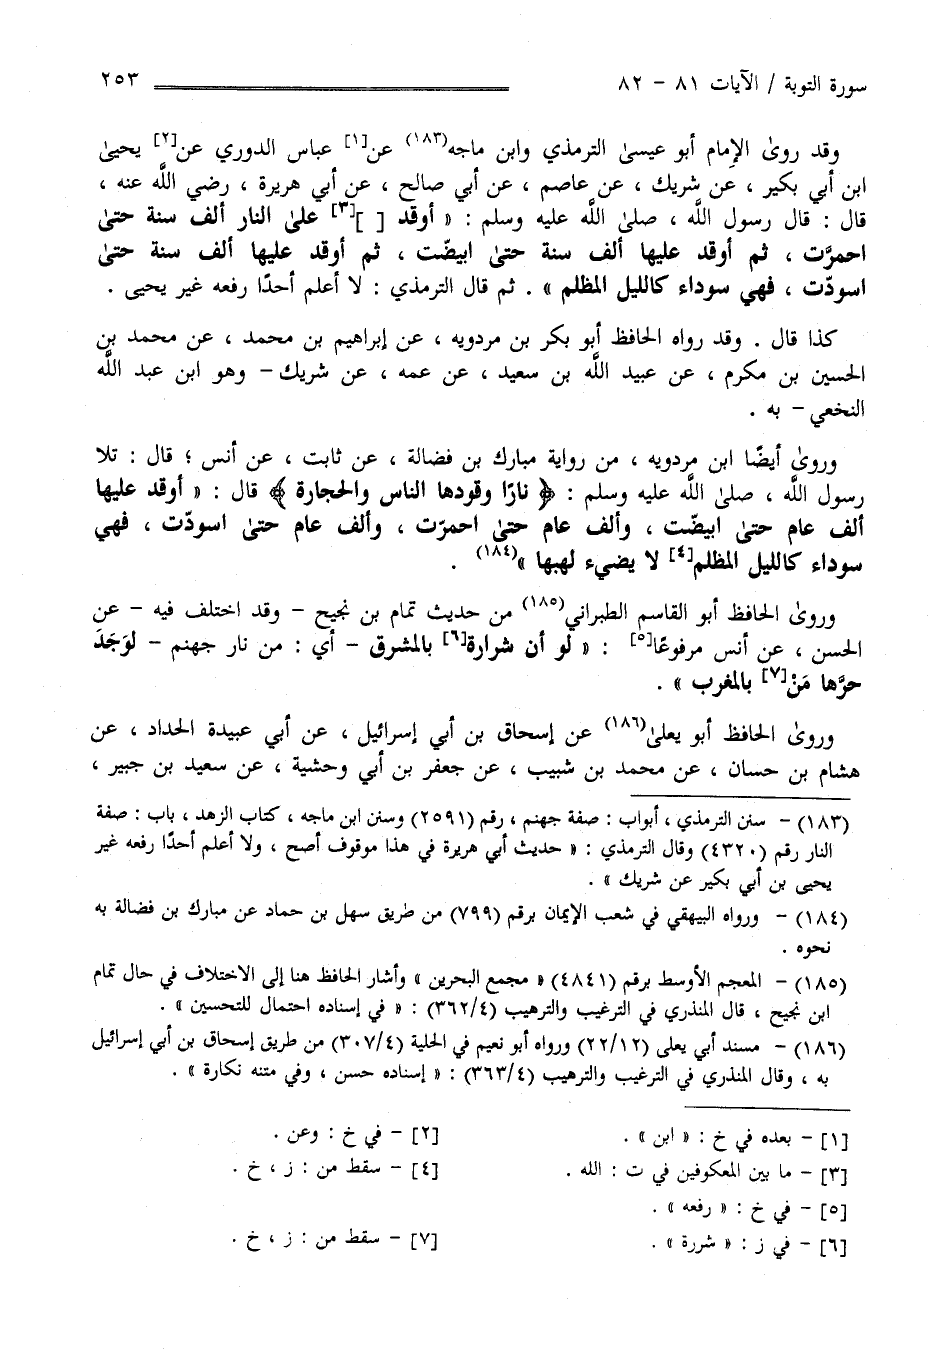 سورة التوبة / الآيات ٨١ - ٨٢ ٢٥٣
وقد روىٰ الإمام أبو عيسىٰ الترمذي وابن ماجه(١٨٣) عن[١] عباس الدوري عن[٢] يحيىٰ
ابن أبي بكير ، عن شريك ، عن عاصم ، عن أبي صالح ، عن أبي هريرة ، رضي اللَّه عنه ،
قال : قال رسول اللَّه ، صلىٰ اللَّه عليه وسلم : « أوقد [ ][٣] علىٰ النار ألف سنة حتىٰ
احمرَّت ، ثم أوقد عليها ألف سنة حتىٰ ابيضّت ، ثم أوقد عليها ألف سنة حتىٰ
اسودّت ، فهي سوداء كالليل المظلم » . ثم قال الترمذي : لا أعلم أحدًا رفعه غير يحيى .
كذا قال . وقد رواه الحافظ أبو بكر بن مردويه ، عن إبراهيم بن محمد ، عن محمد بن
الحسين بن مكرم ، عن عبيد اللَّه بن سعيد ، عن عمه ، عن شريك - وهو ابن عبد اللَّه
النخعي - به .
وروىٰ أيضًا ابن مردويه ، من رواية مبارك بن فضالة ، عن ثابت ، عن أنس ؛ قال : تلا
رسول اللَّه ، صلىٰ اللَّه عليه وسلم : ﴿ نارًا وقودها الناس والحجارة ﴾ قال : « أوقد عليها
ألف عام حتىٰ ابيضّت ، وألف عام حتىٰ احمرّت ، وألف عام حتىٰ اسودّت ، فهي
سوداء كالليل المظلم[٤] لا يضيء لهبها »(١٨٤) .
وروىٰ الحافظ أبو القاسم الطبراني(١٨٥) من حديث تمام بن نجيح - وقد اختلف فيه - عن
الحسن ، عن أنس مرفوعًا[٥] : « لو أن شرارة[٦] بالمشرق - أي : من نار جهنم - لوَجَدَ
حرَّها مَنْ[٧] بالمغرب » .
وروىٰ الحافظ أبو يعلىٰ(١٨٦) عن إسحاق بن أبي إسرائيل ، عن أبي عبيدة الحداد ، عن
هشام بن حسان ، عن محمد بن شبيب ، عن جعفر بن أبي وحشية ، عن سعيد بن جبير ،
(١٨٣) - سنن الترمذي ، أبواب : صفة جهنم ، رقم (٢٥٩١) وسنن ابن ماجه ، كتاب الزهد ، باب : صفة
النار رقم (٤٣٢٠) وقال الترمذي : « حديث أبي هريرة في هذا موقوف أصح ، ولا أعلم أحدًا رفعه غير
يحيى بن أبي بكير عن شريك » .
(١٨٤) - ورواه البيهقي في شعب الإيمان برقم (٧٩٩) من طريق سهل بن حماد عن مبارك بن فضالة به
نحوه .
(١٨٥) - المعجم الأوسط برقم (٤٨٤١) « مجمع البحرين » وأشار الحافظ هنا إلى الاختلاف في حال تمام
ابن نجيح ، قال المنذري في الترغيب والترهيب (٣٦٢/٤) : « في إسناده احتمال للتحسين » .
(١٨٦) - مسند أبي يعلى (٢٢/١٢) ورواه أبو نعيم في الحلية (٣٠٧/٤) من طريق إسحاق بن أبي إسرائيل
به ، وقال المنذري في الترغيب والترهيب (٣٦٣/٤) : « إسناده حسن ، وفي متنه نكارة » .
[١] - بعده في خ : « ابن » . [٢] - في خ : وعن .
[٣] - ما بين المعكوفين في ت : الله . [٤] - سقط من : ز ، خ .
[٥] - في خ : « رفعه » .
[٦] - في ز : « شررة » . [٧] - سقط من : ز ، خ .